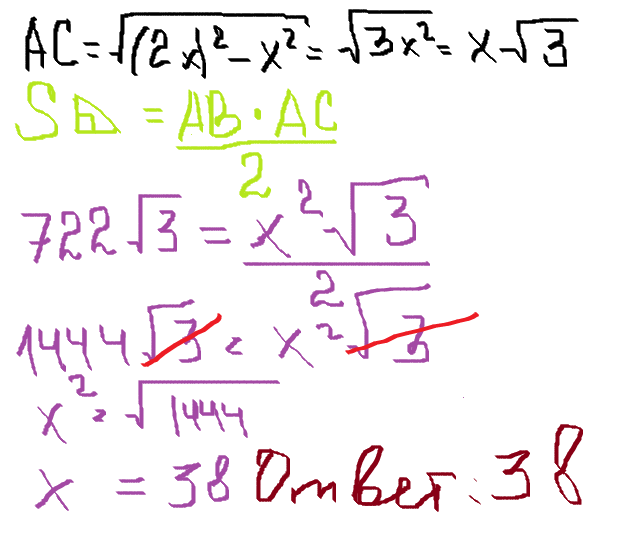 AC = √((2x)² - x²) = √(3x²) = x√3
S⊿ = (AB · AC)/2
722√3 = (x²√3)/2
1444√3 = x²√3
x² = √1444
x = 38 Ответ: 38